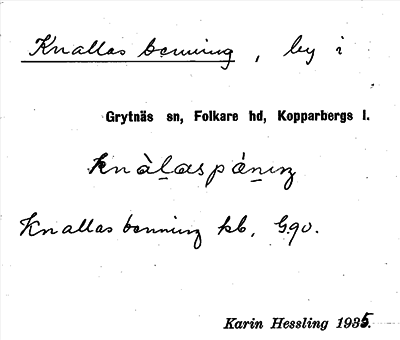 Knallas benning, by i
Grytnäs sn, Folkare hd, Kopparbergs l.
knàlaspániŋ
Knallas benning kb, G.qv.
Karin Hessling 1935.